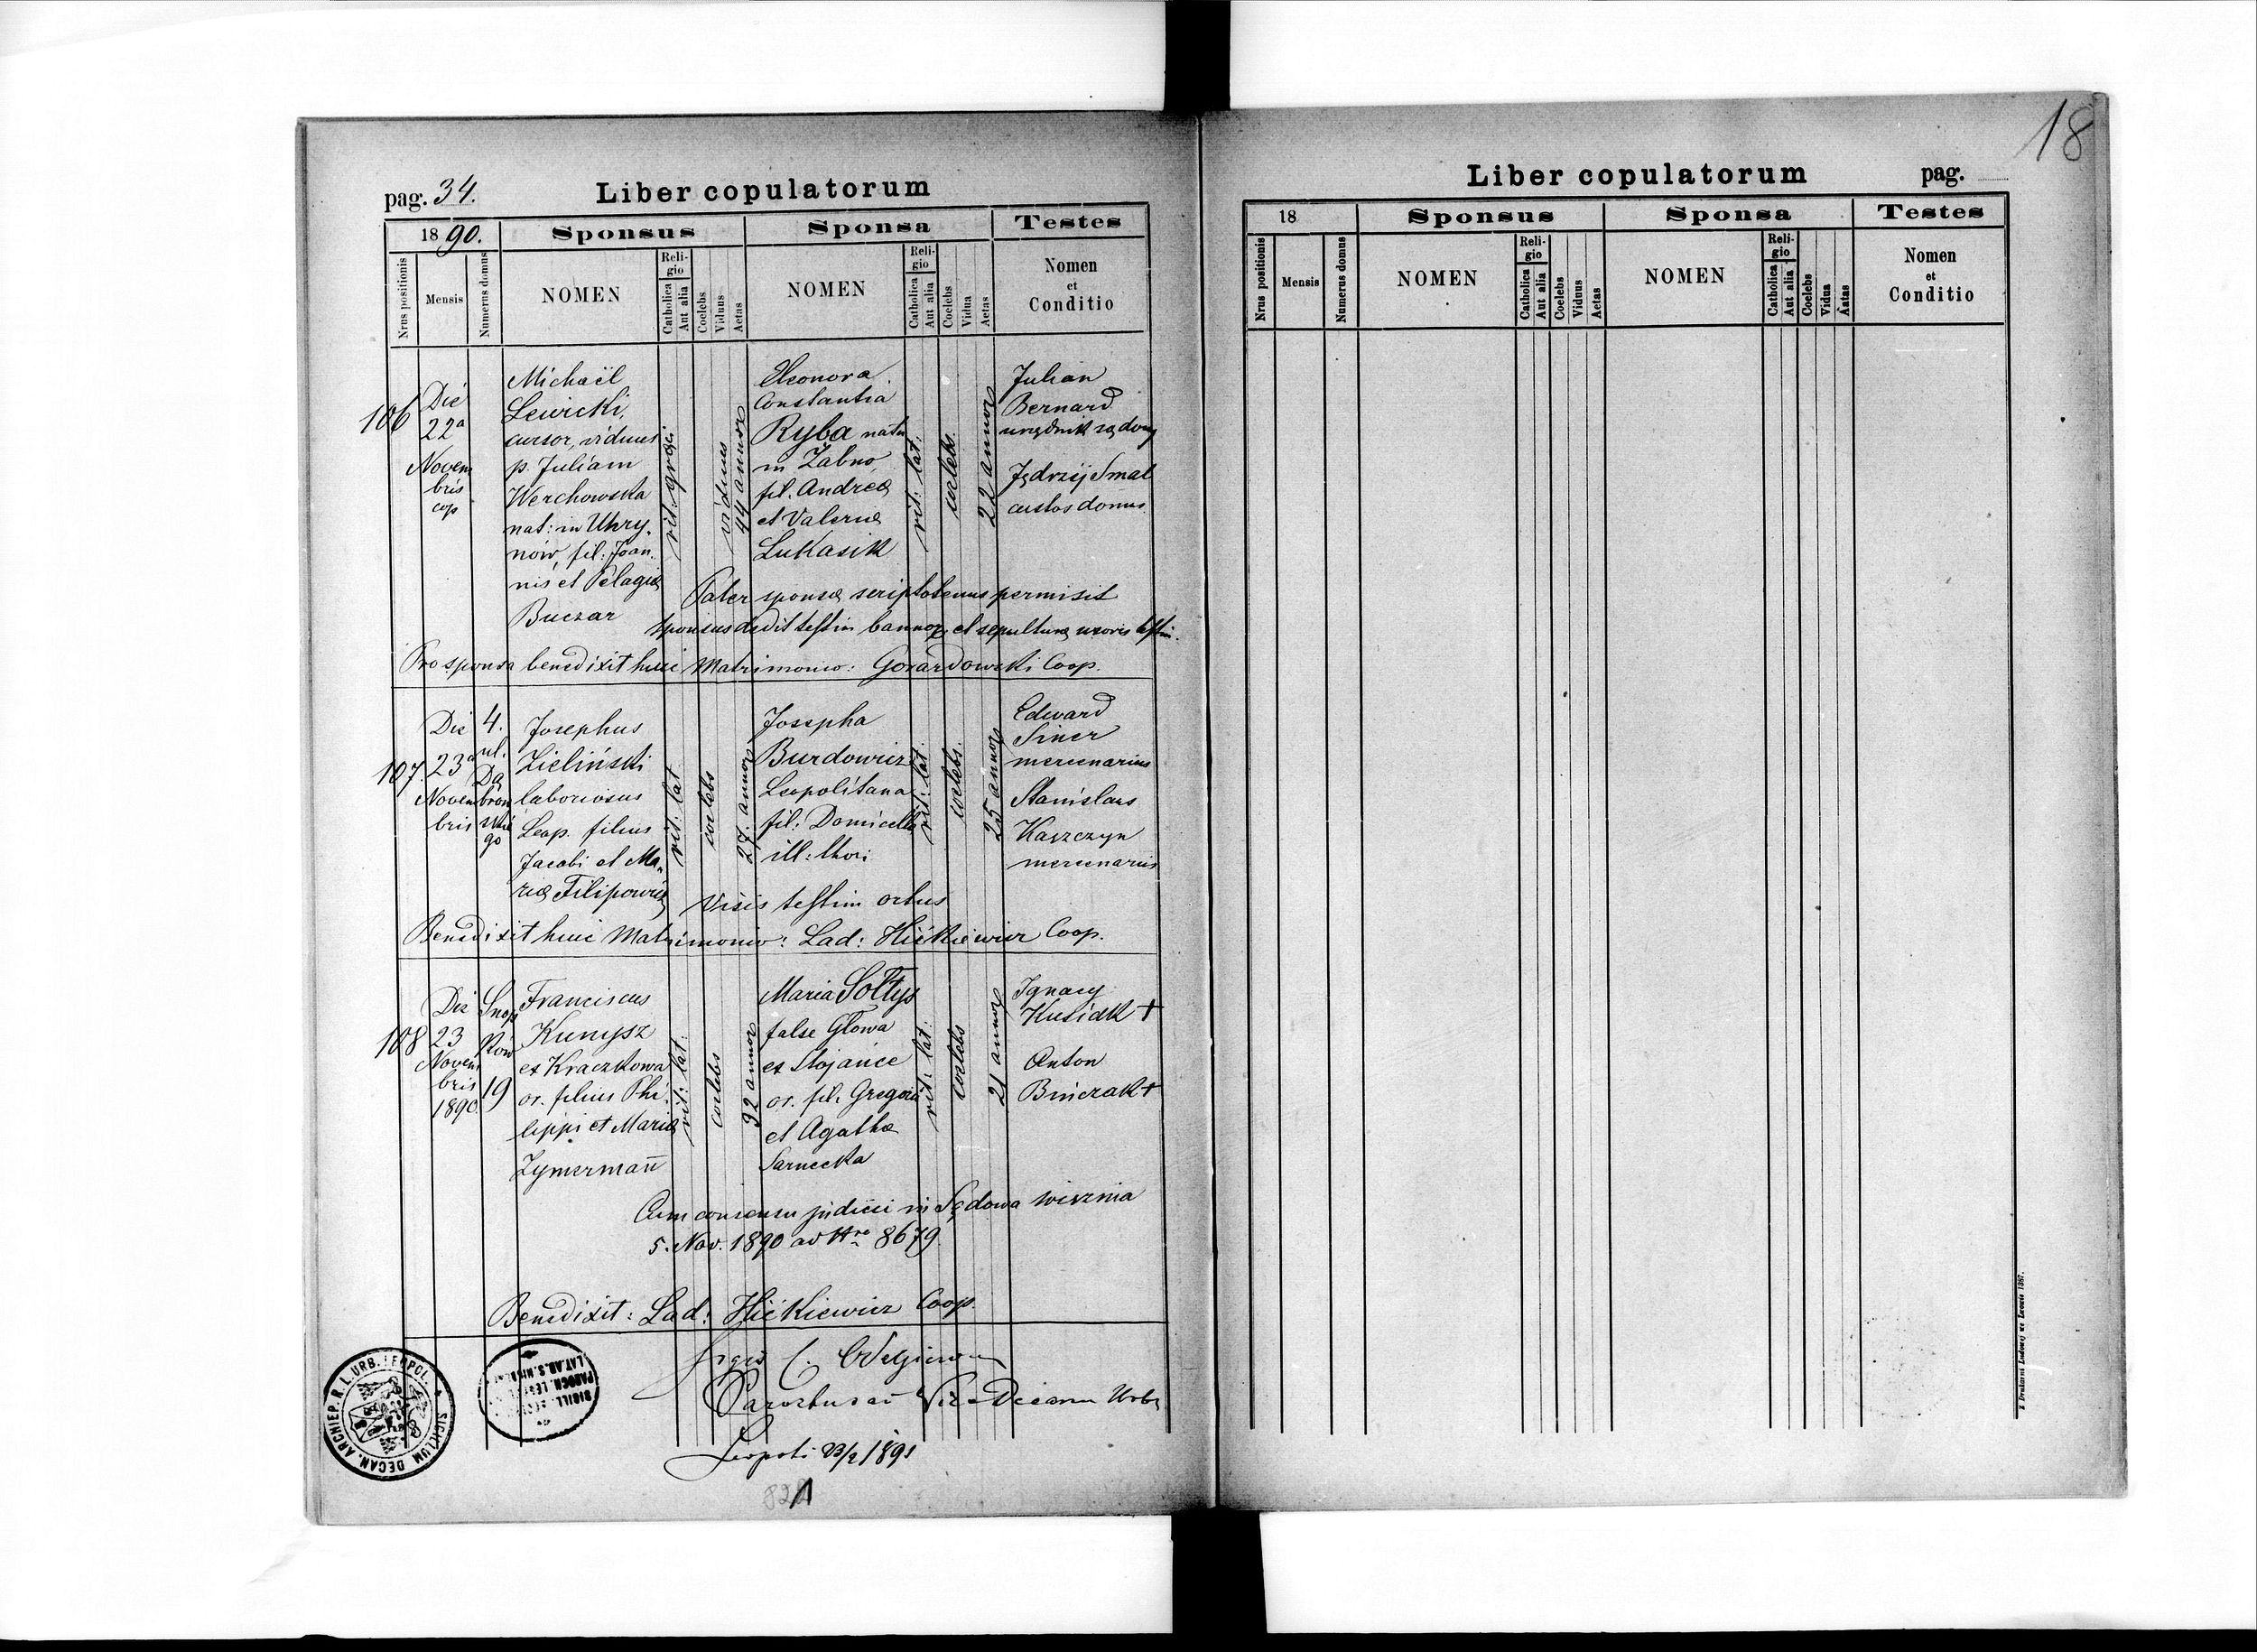 18
pag. 34.
Liber copulatorum
18 90.
Sponsus
Sponsa
Testes
Nrus positionis
Mensis
Numerus domus
NOMEN
Religio
Catholica
Aut alia
Coelebs
Viduus
Aetas
NOMEN
Religio
Catholica
Aut alia
Coelebs
Vidua
Aetas
Nomen
et
Conditio
106
Die
22ª
Novem
bris
cop
Michaël
Lewicki,
cursor, viduus
p. Juliam
Werchowska
nat: in Uhry-
nów, fil: Joan
nis et Pelagiæ
Buczar
rit: græci
viduus
44 annor
Eleonora
Constantia
Ryba nata
in Żabno,
fil. Andreæ
et Valeriæ
Lukasik
rit: lat:
coelebs
22 annor
Julian
Bernard
urzędnik sądowy
Jędrzij Smal
custos domus
Pater sponsæ scriptotenus permisit
Sponsus dedit testim bannor et sepulturæ uxoris testim.
Pro sponsa benedixit huic Matrimonio: Coop.
107
Die
23ª
Novem
bris
4.
ul.
Dą
brow
skie
go
Josephus
Zieliński
laboriosus
Leop. filius
Jacobi et Ma-
riæ Filipowicz
rit: lat
coelebs
27. annor
Josepha
Burdowicz
Leopolitana
fil: Domicellæ
ill: thori
rit: lat
coelebs.
25 annor
Edward
Siner
mercenarius
Stanislaus
Kaszczyn
mercenarius
Visis testim ortus
Benedixit huic Matrimonio: Lad: Hićkiewicz Coop.
108
Die
23
Novem
bris
1890.
Snop
ków
19
Franciscus
Kunysz
ex Kraczkowa
or. filius Phi
lippi et Mariæ
Zymermañ
rit: lat:
coelebs
32 annor
Maria Sołtys
false Głowa
ex Stojańce
or. fil. Gregorii
et Agathæ
Sarnecka
rit: lat:
coelebs
21 annor
Ignacy
Kusidk +
Anton
Binczak +
Cum consensu judicii in Sądowa wisznia
5. Nov. 1890 ad Nro 8679
Benedixit: Lad: Hićkiewicz Coop.
Parochus
Leopoli 23/2 1891
SIGILLUM DECAN. ARCHIEP. R. L. URB. LEOPOL.
1
Liber copulatorum
pag.
18
Sponsus
Sponsa
Testes
Nrus positionis
Mensis
Numerus domus
NOMEN
Religio
Catholica
Aut alia
Coelebs
Viduus
Aetas
NOMEN
Religio
Catholica
Aut alia
Coelebs
Vidua
Aetas
Nomen
et
Conditio
Z Drukarni Ludowej we Lwowie 1887.